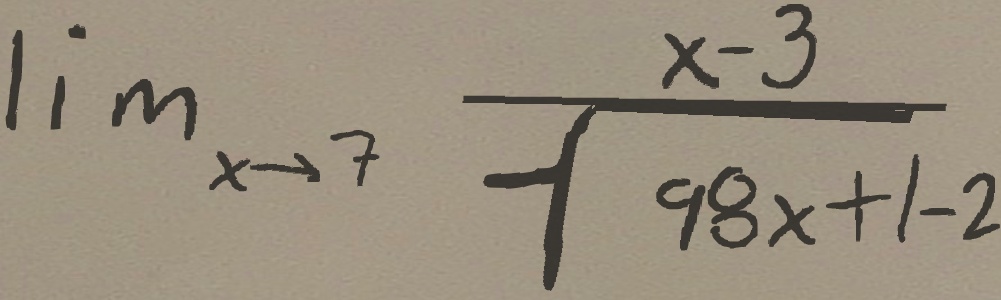 lim x→7 x-3
√98x+1-2